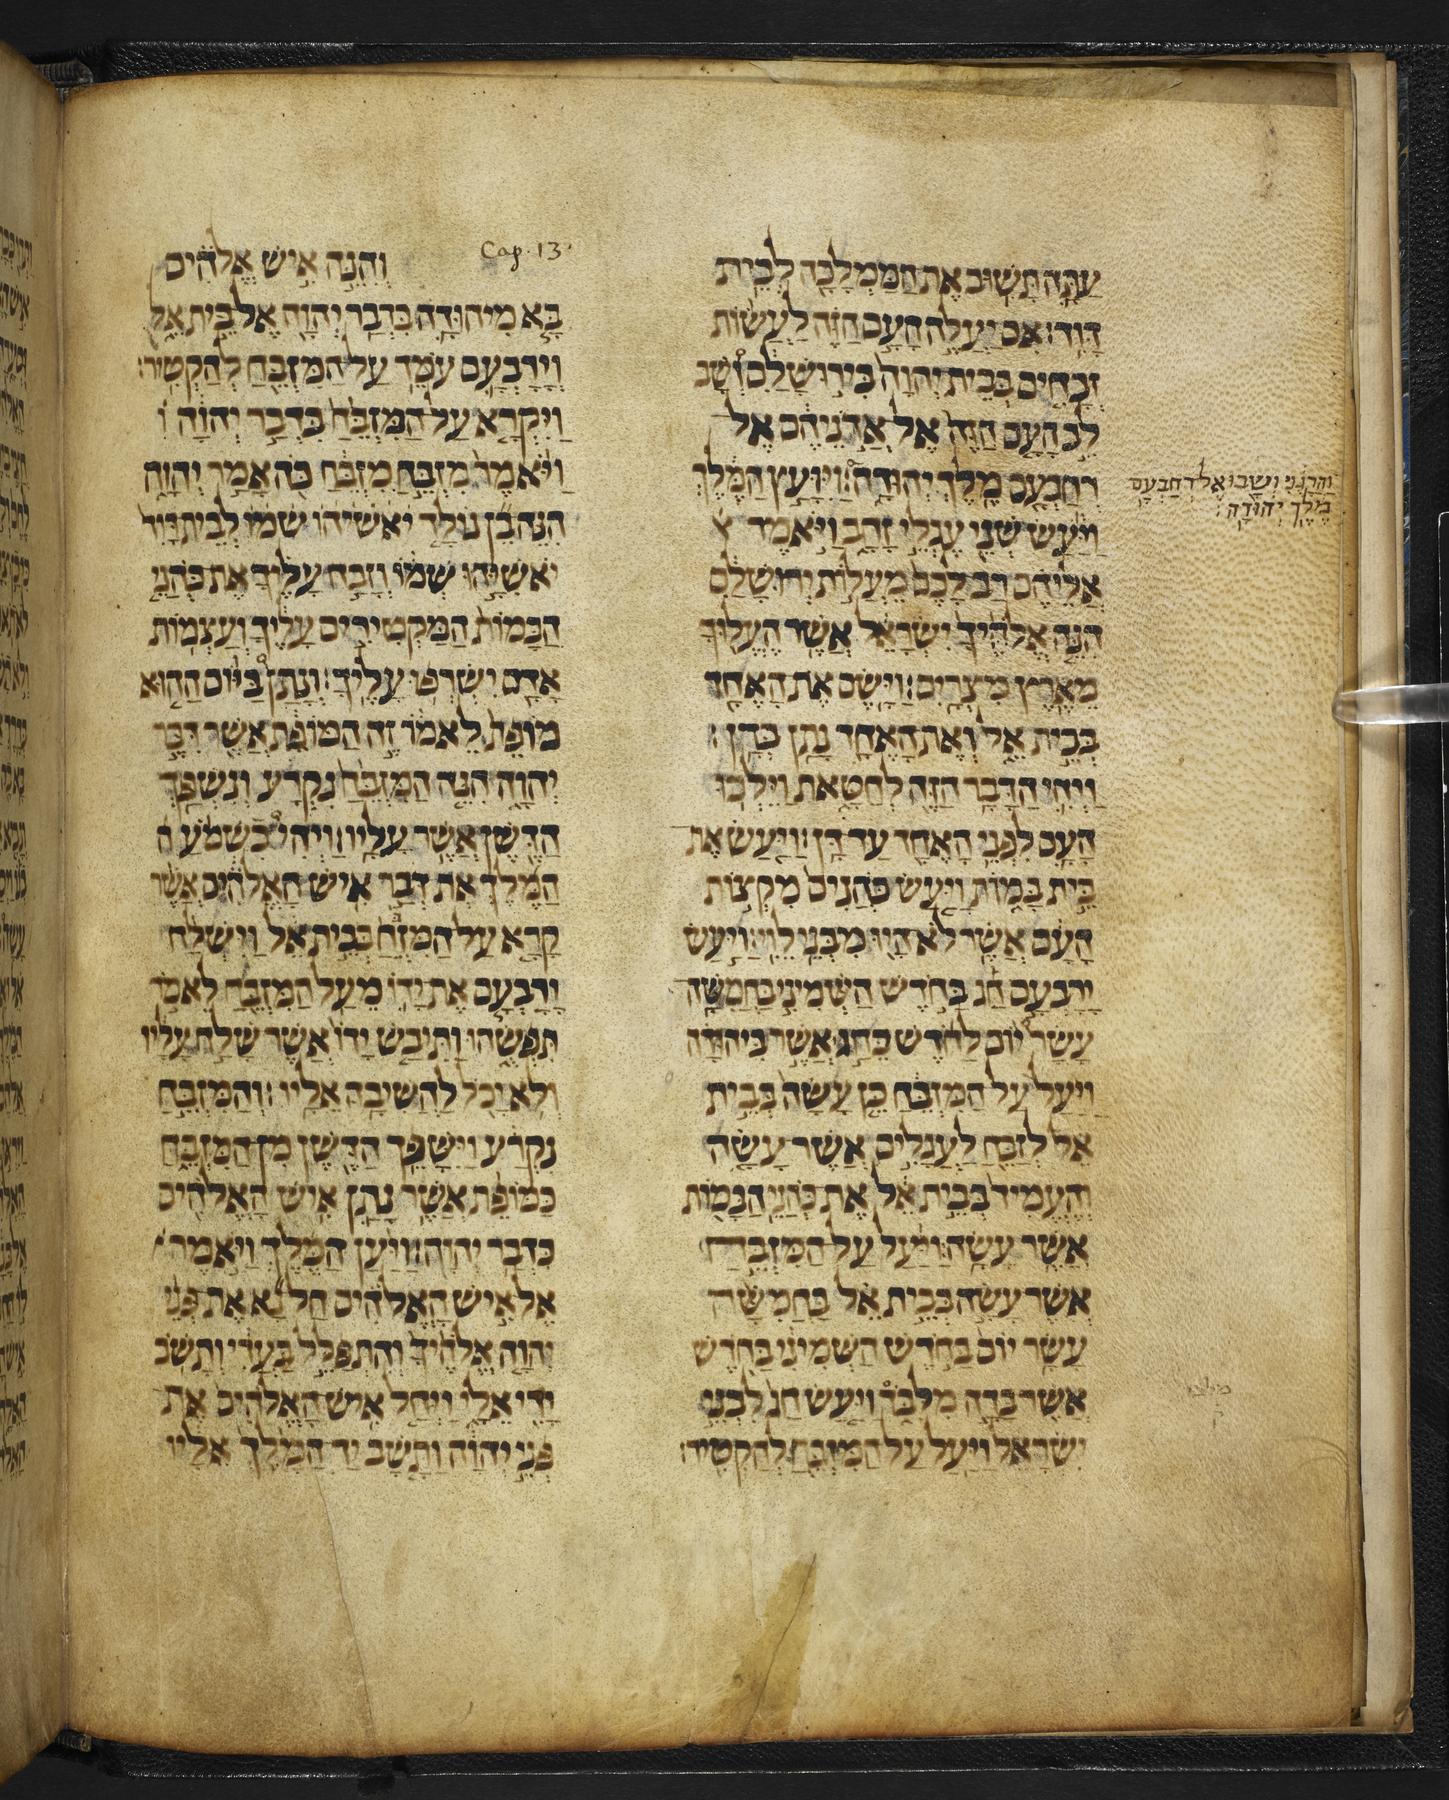 עַתָּה תָּשׁוּב אֶת הַמַּמְלָכָה לְבֵית
דָּוִד׃ אִם יַעֲלֶה הָעָם הַזֶּה לַעֲשׂוֹת
זְבָחִים בְּבֵית יְהוָה בִּירוּשָׁלִַם וְשָׁב
לֵב הָעָם הַזֶּה אֶל אֲדֹנֵיהֶם אֶל
רְחַבְעָם מֶלֶךְ יְהוּדָה׃ וַיִּוָּעַץ הַמֶּלֶךְ
וַיַּעַשׂ שְׁנֵי עֶגְלֵי זָהָב וַיֹּאמֶר
אֲלֵיהֶם רַב לָכֶם מֵעֲלוֹת יְרוּשָׁלִַם
הִנֵּה אֱלֹהֶיךָ יִשְׂרָאֵל אֲשֶׁר הֶעֱלוּךָ
מֵאֶרֶץ מִצְרָיִם׃ וַיָּשֶׂם אֶת הָאֶחָד
בְּבֵית אֵל וְאֶת הָאֶחָד נָתַן בְּדָן׃
וַיְהִי הַדָּבָר הַזֶּה לְחַטָּאת וַיֵּלְכוּ
הָעָם לִפְנֵי הָאֶחָד עַד דָּן׃ וַיַּעַשׂ אֶת
בֵּית בָּמוֹת וַיַּעַשׂ כֹּהֲנִים מִקְצוֹת
הָעָם אֲשֶׁר לֹא הָיוּ מִבְּנֵי לֵוִי׃ וַיַּעַשׂ
יָרָבְעָם חַג בַּחֹדֶשׁ הַשְּׁמִינִי בַּחֲמִשָּׁה
עָשָׂר יוֹם לַחֹדֶשׁ כֶּחָג אֲשֶׁר בִּיהוּדָה
וַיַּעַל עַל הַמִּזְבֵּחַ כֵּן עָשָׂה בְּבֵית
אֵל לְזַבֵּחַ לָעֲגָלִים אֲשֶׁר עָשָׂה
וְהֶעֱמִיד בְּבֵית אֵל אֶת כֹּהֲנֵי הַבָּמוֹת
אֲשֶׁר עָשָׂה׃ וַיַּעַל עַל הַמִּזְבֵּחַ
אֲשֶׁר עָשָׂה בְּבֵית אֵל בַּחֲמִשָּׁה
עָשָׂר יוֹם בַּחֹדֶשׁ הַשְּׁמִינִי בַּחֹדֶשׁ
אֲשֶׁר בָּדָה מִלִּבֹּד וַיַּעַשׂ חַג לִבְנֵי
יִשְׂרָאֵל וַיַּעַל עַל הַמִּזְבֵּחַ לְהַקְטִיר׃
וַהֲרָגֻנִי וְשָׁבוּ אֶל רְחַבְעָם
מֶלֶךְ יְהוּדָה׃
Cap. 13.
וְהִנֵּה אִישׁ אֱלֹהִים
בָּא מִיהוּדָה בִּדְבַר יְהוָה אֶל בֵּית אֵל
וְיָרָבְעָם עֹמֵד עַל הַמִּזְבֵּחַ לְהַקְטִיר׃
וַיִּקְרָא עַל הַמִּזְבֵּחַ בִּדְבַר יְהוָה
וַיֹּאמֶר מִזְבֵּחַ מִזְבֵּחַ כֹּה אָמַר יְהוָה
הִנֵּה בֵן נוֹלָד יֹאשִׁיהוּ שְׁמוֹ לְבֵית דָּוִד
יֹאשִׁיָּהוּ שְׁמוֹ וְזָבַח עָלֶיךָ אֶת כֹּהֲנֵי
הַבָּמוֹת הַמַּקְטִירִים עָלֶיךָ וְעַצְמוֹת
אָדָם יִשְׂרְפוּ עָלֶיךָ׃ וְנָתַן בַּיּוֹם הַהוּא
מוֹפֵת לֵאמֹר זֶה הַמּוֹפֵת אֲשֶׁר דִּבֶּר
יְהוָה הִנֵּה הַמִּזְבֵּחַ נִקְרָע וְנִשְׁפַּךְ
הַדֶּשֶׁן אֲשֶׁר עָלָיו׃ וַיְהִי כִשְׁמֹעַ ה
הַמֶּלֶךְ אֶת דְּבַר אִישׁ הָאֱלֹהִים אֲשֶׁר
קָרָא עַל הַמִּזְבֵּחַ בְּבֵית אֵל וַיִּשְׁלַח
יָרָבְעָם אֶת יָדוֹ מֵעַל הַמִּזְבֵּחַ לֵאמֹר
תִּפְשֻׂהוּ וַתִּיבַשׁ יָדוֹ אֲשֶׁר שָׁלַח עָלָיו
וְלֹא יָכֹל לַהֲשִׁיבָהּ אֵלָיו׃ וְהַמִּזְבֵּחַ
נִקְרָע וַיִּשָּׁפֵךְ הַדֶּשֶׁן מִן הַמִּזְבֵּחַ
כַּמּוֹפֵת אֲשֶׁר נָתַן אִישׁ הָאֱלֹהִים
בִּדְבַר יְהוָה׃ וַיַּעַן הַמֶּלֶךְ וַיֹּאמֶר
אֶל אִישׁ הָאֱלֹהִים חַל נָא אֶת פְּנֵי
יְהוָה אֱלֹהֶיךָ וְהִתְפַּלֵּל בַּעֲדִי וְתָשֹׁב
יָדִי אֵלָי וַיְחַל אִישׁ הָאֱלֹהִים אֶת
פְּנֵי יְהוָה וַתָּשָׁב יַד הַמֶּלֶךְ אֵלָיו